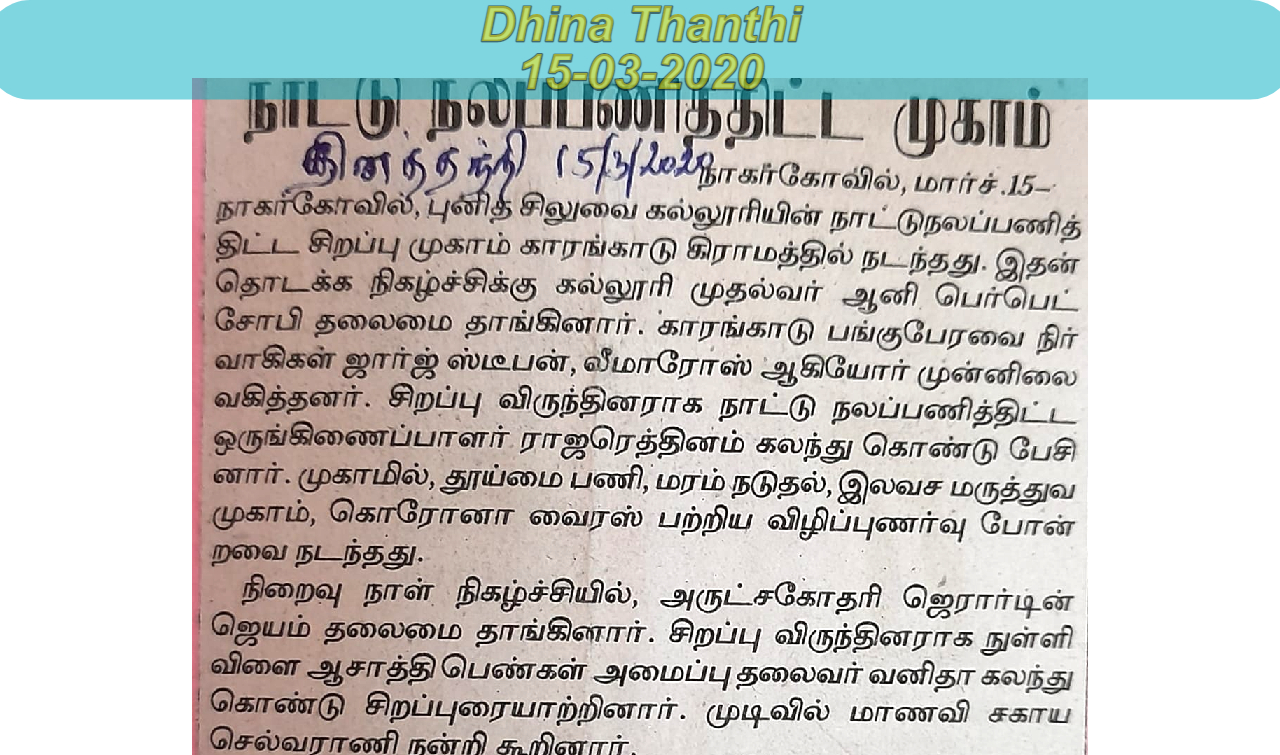 Dhina Thanthi
15-03-2020
நாட்டு நலப்பணித்திட்ட முகாம்
தினத்தந்தி 15/3/2020
நாகர்கோவில், மார்ச்.15–
நாகர்கோவில், புனித சிலுவை கல்லூரியின் நாட்டுநலப்பணித்
திட்ட சிறப்பு முகாம் காரங்காடு கிராமத்தில் நடந்தது. இதன்
தொடக்க நிகழ்ச்சிக்கு கல்லூரி முதல்வர் ஆனி பெர்பெட்
சோபி தலைமை தாங்கினார். காரங்காடு பங்குபேரவை நிர்
வாகிகள் ஜார்ஜ் ஸ்டீபன், லீமாரோஸ் ஆகியோர் முன்னிலை
வகித்தனர். சிறப்பு விருந்தினராக நாட்டு நலப்பணித்திட்ட
ஒருங்கிணைப்பாளர் ராஜரெத்தினம் கலந்து கொண்டு பேசி
னார். முகாமில், தூய்மை பணி, மரம் நடுதல், இலவச மருத்துவ
முகாம், கொரோனா வைரஸ் பற்றிய விழிப்புணர்வு போன்
றவை நடந்தது.
நிறைவு நாள் நிகழ்ச்சியில், அருட்சகோதரி ஜெரார்டின்
ஜெயம் தலைமை தாங்கினார். சிறப்பு விருந்தினராக நுள்ளி
விளை ஆசாத்தி பெண்கள் அமைப்பு தலைவர் வனிதா கலந்து
கொண்டு சிறப்புரையாற்றினார். முடிவில் மாணவி சகாய
செல்வராணி நன்றி கூறினார்.